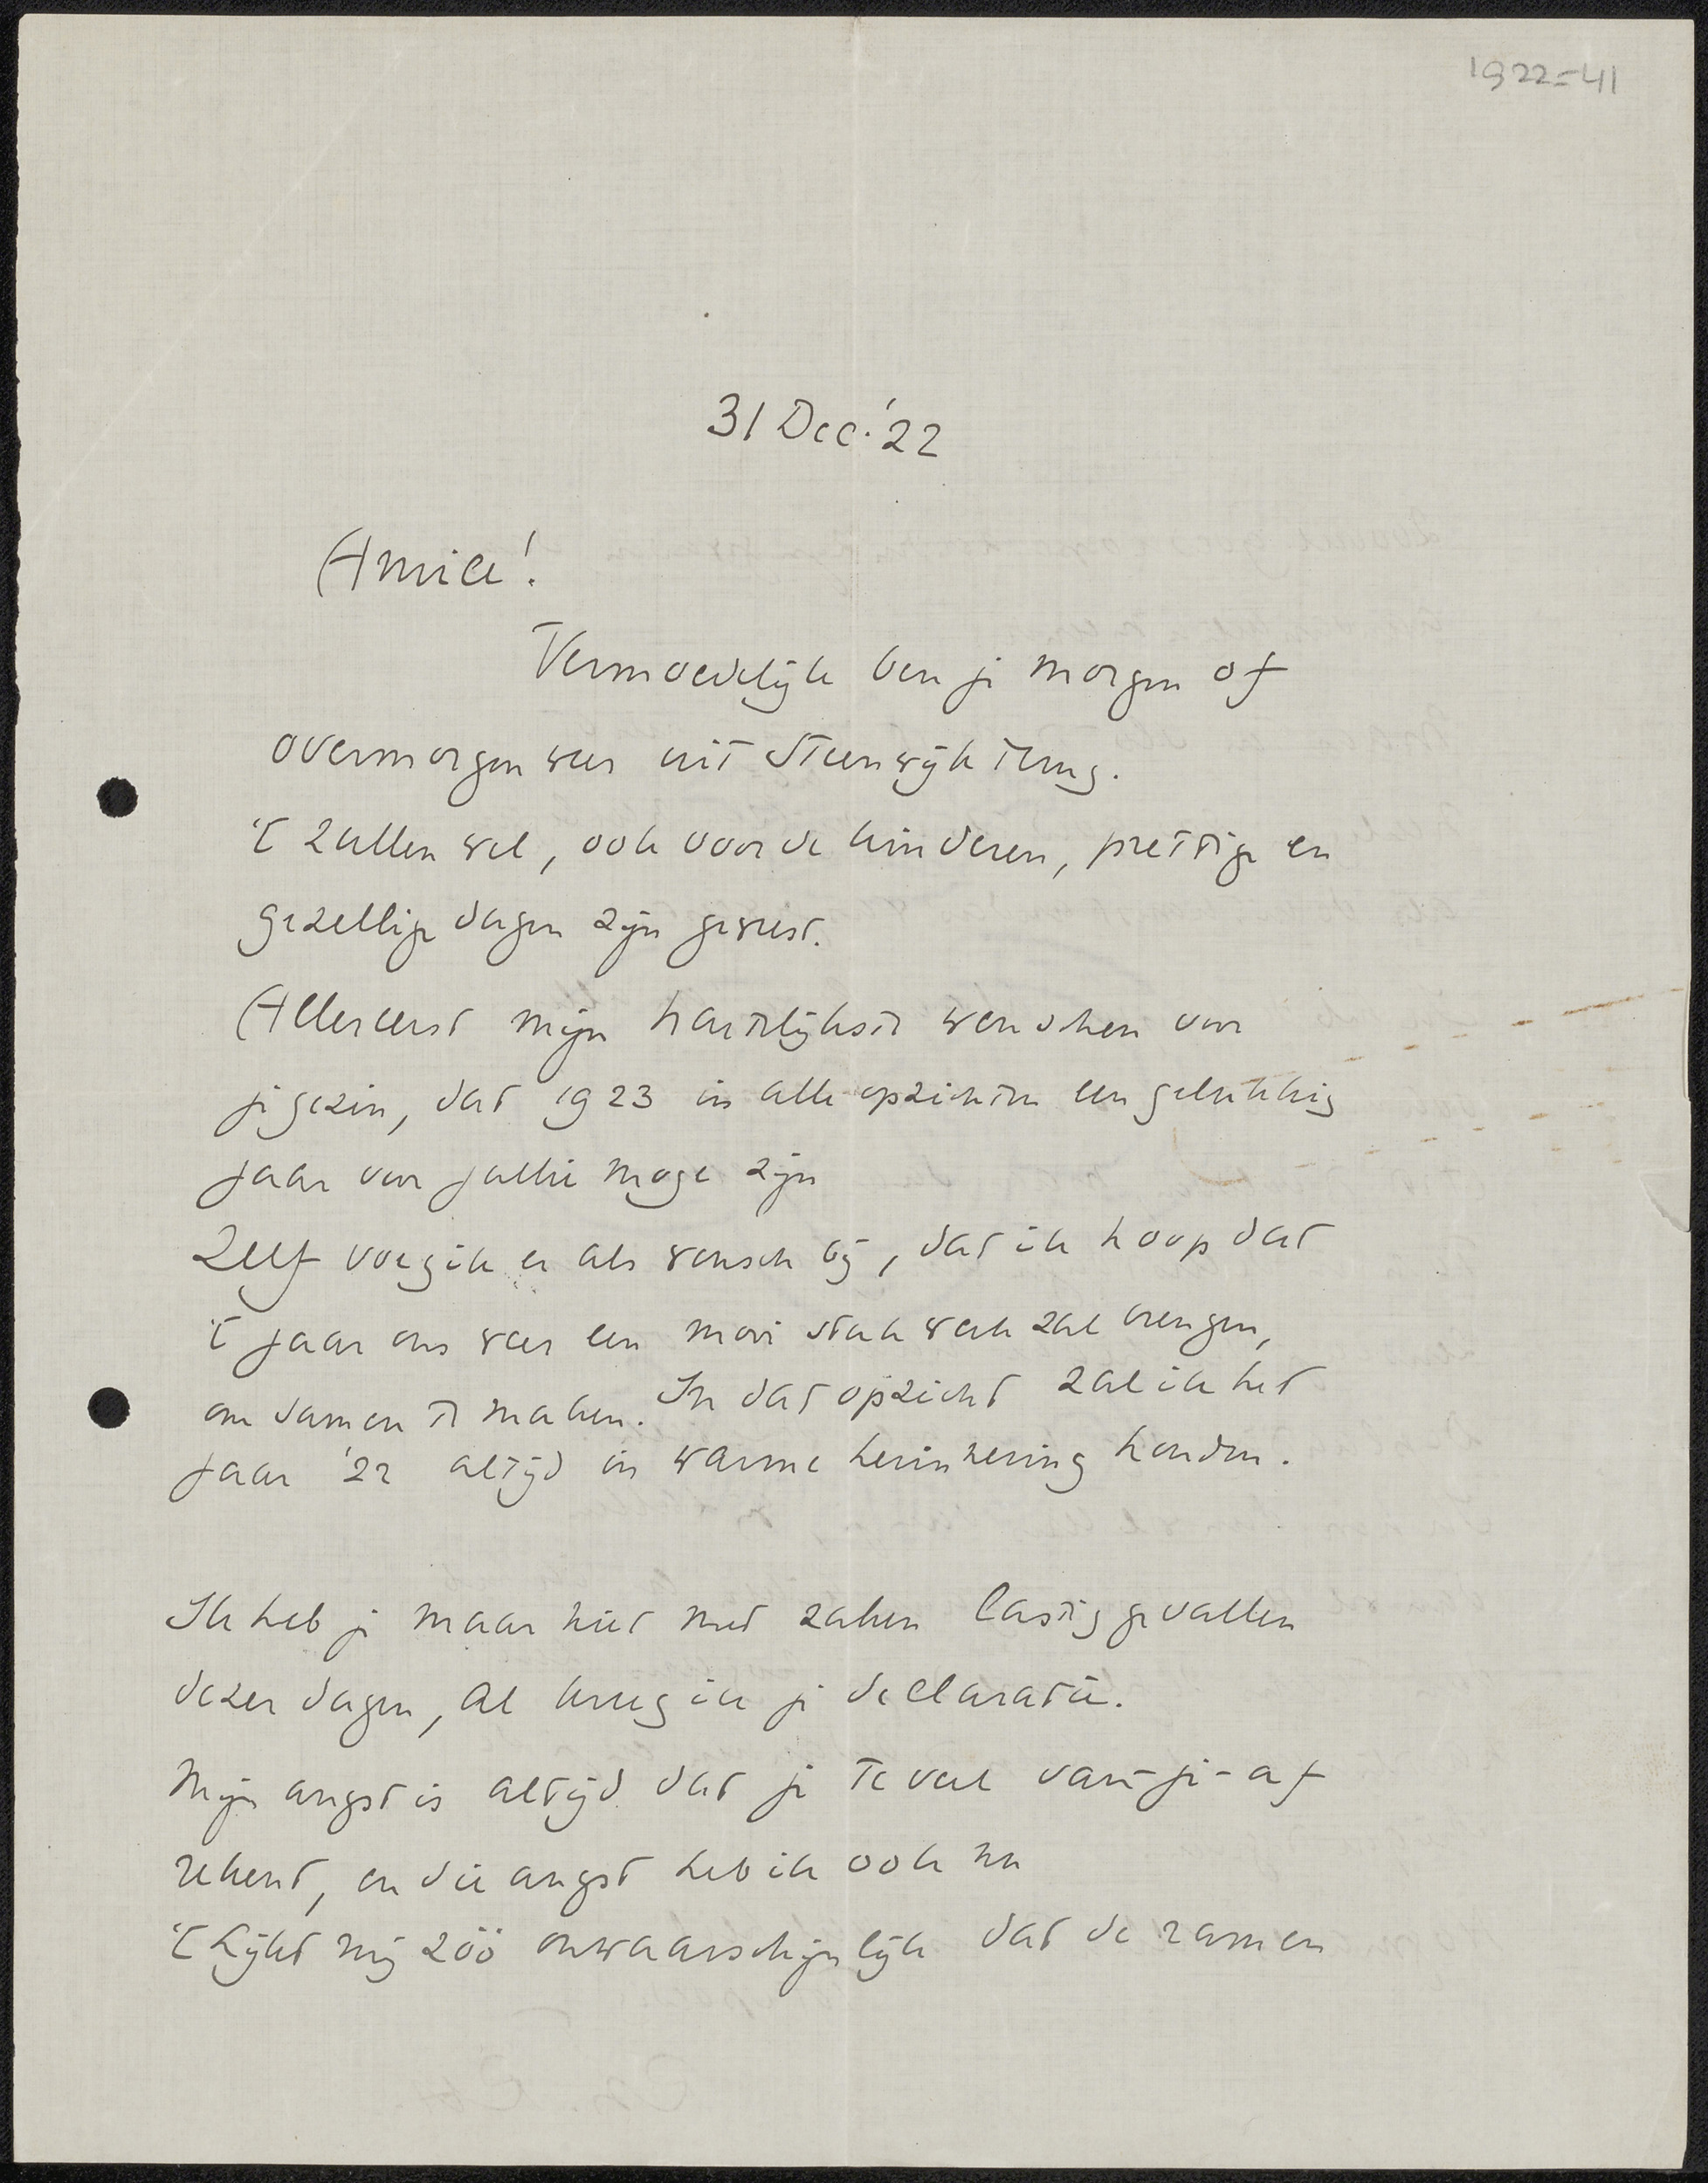 1922=41
31 Dec. '22
Amice!
Vermoedelijk ben je morgen of
overmorgen weer uit Steenwijk terug.
't Zullen wel, ook voor de kinderen, prettige en
gezellige dagen zijn geweest.
Allereerst mijn hartelijkste wenschen voor
je gezin, dat 1923 in alle opzichten een gelukkig
jaar voor jullie moge zijn
Zelf voeg ik er als wensch bij, dat ik hoop dat
't jaar ons weer een mooi stuk werk zal brengen,
om samen te maken. In dat opzicht zal ik het
jaar '22 altijd in warme herinnering houden.
Ik heb je maar niet met zaken lastig gevallen
dezer dagen, al kreeg ik je declaratie.
Mijn angst is altijd dat je te veel van-je-af
rekent, en die angst heb ik ook nu
't Lijkt mij zóó onwaarschijnlijk dat de ramen